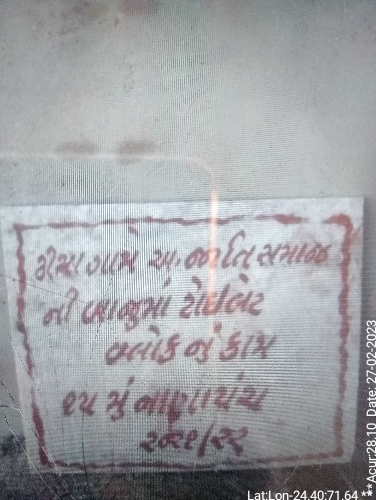 ઢીમા ગામે અ.જાતિ સમાજ
ની બાજુમાં ટોઈલેટ
બ્લોક નું કામ
૧૫ મું નાણાપંચ
૨૦૨૧/૨૨
Lat:Lon-24.40:71.64 ** Acur:28.10 Date: 27-02-2023